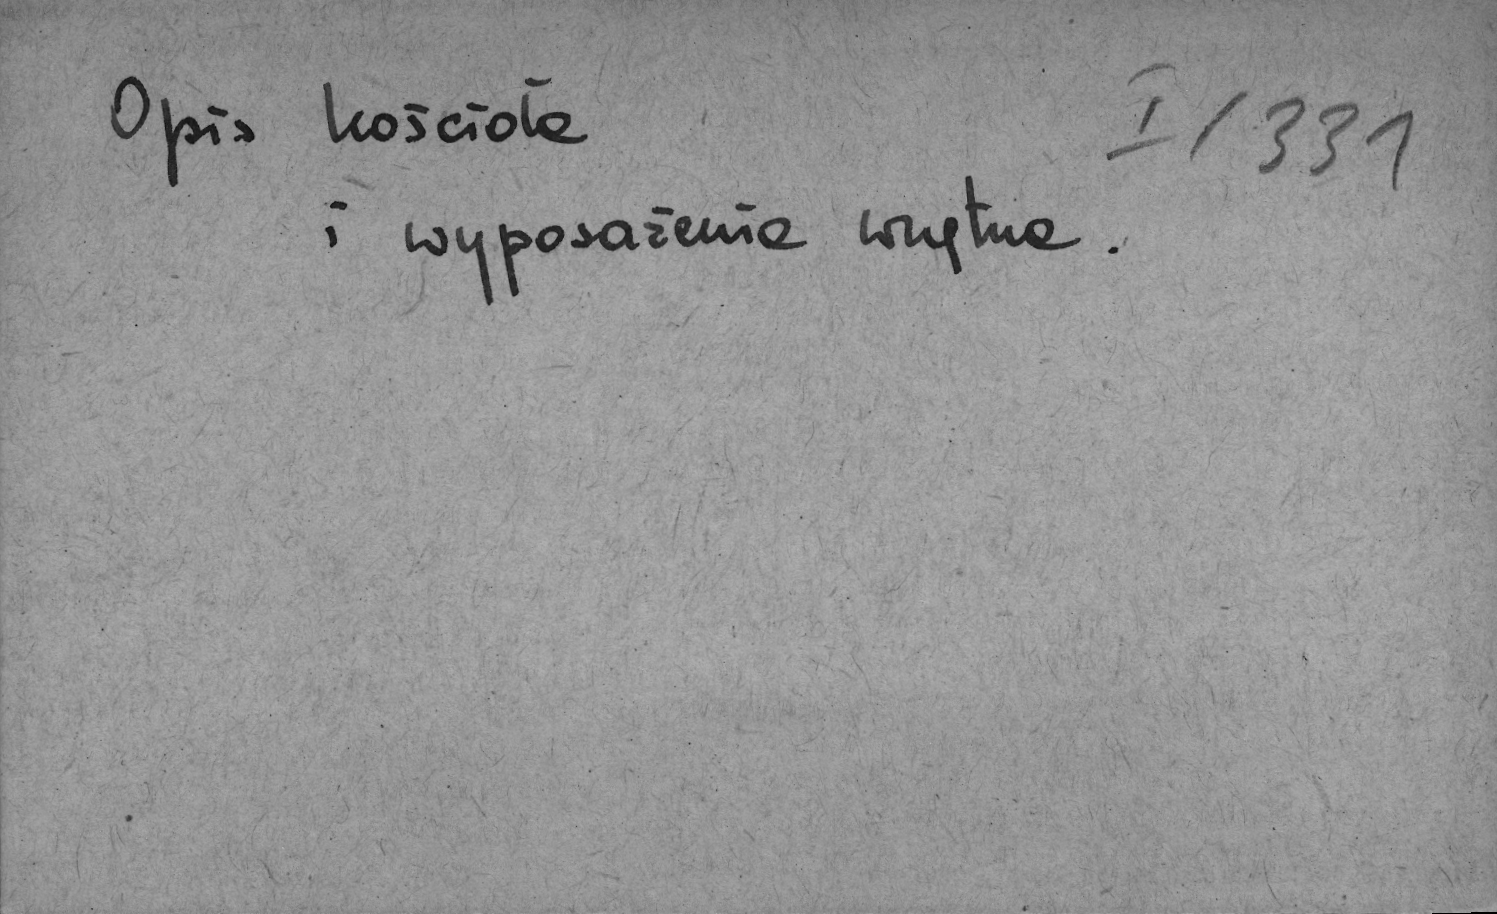 Opis kościoła I/331
i wyposażenia wnętrza.